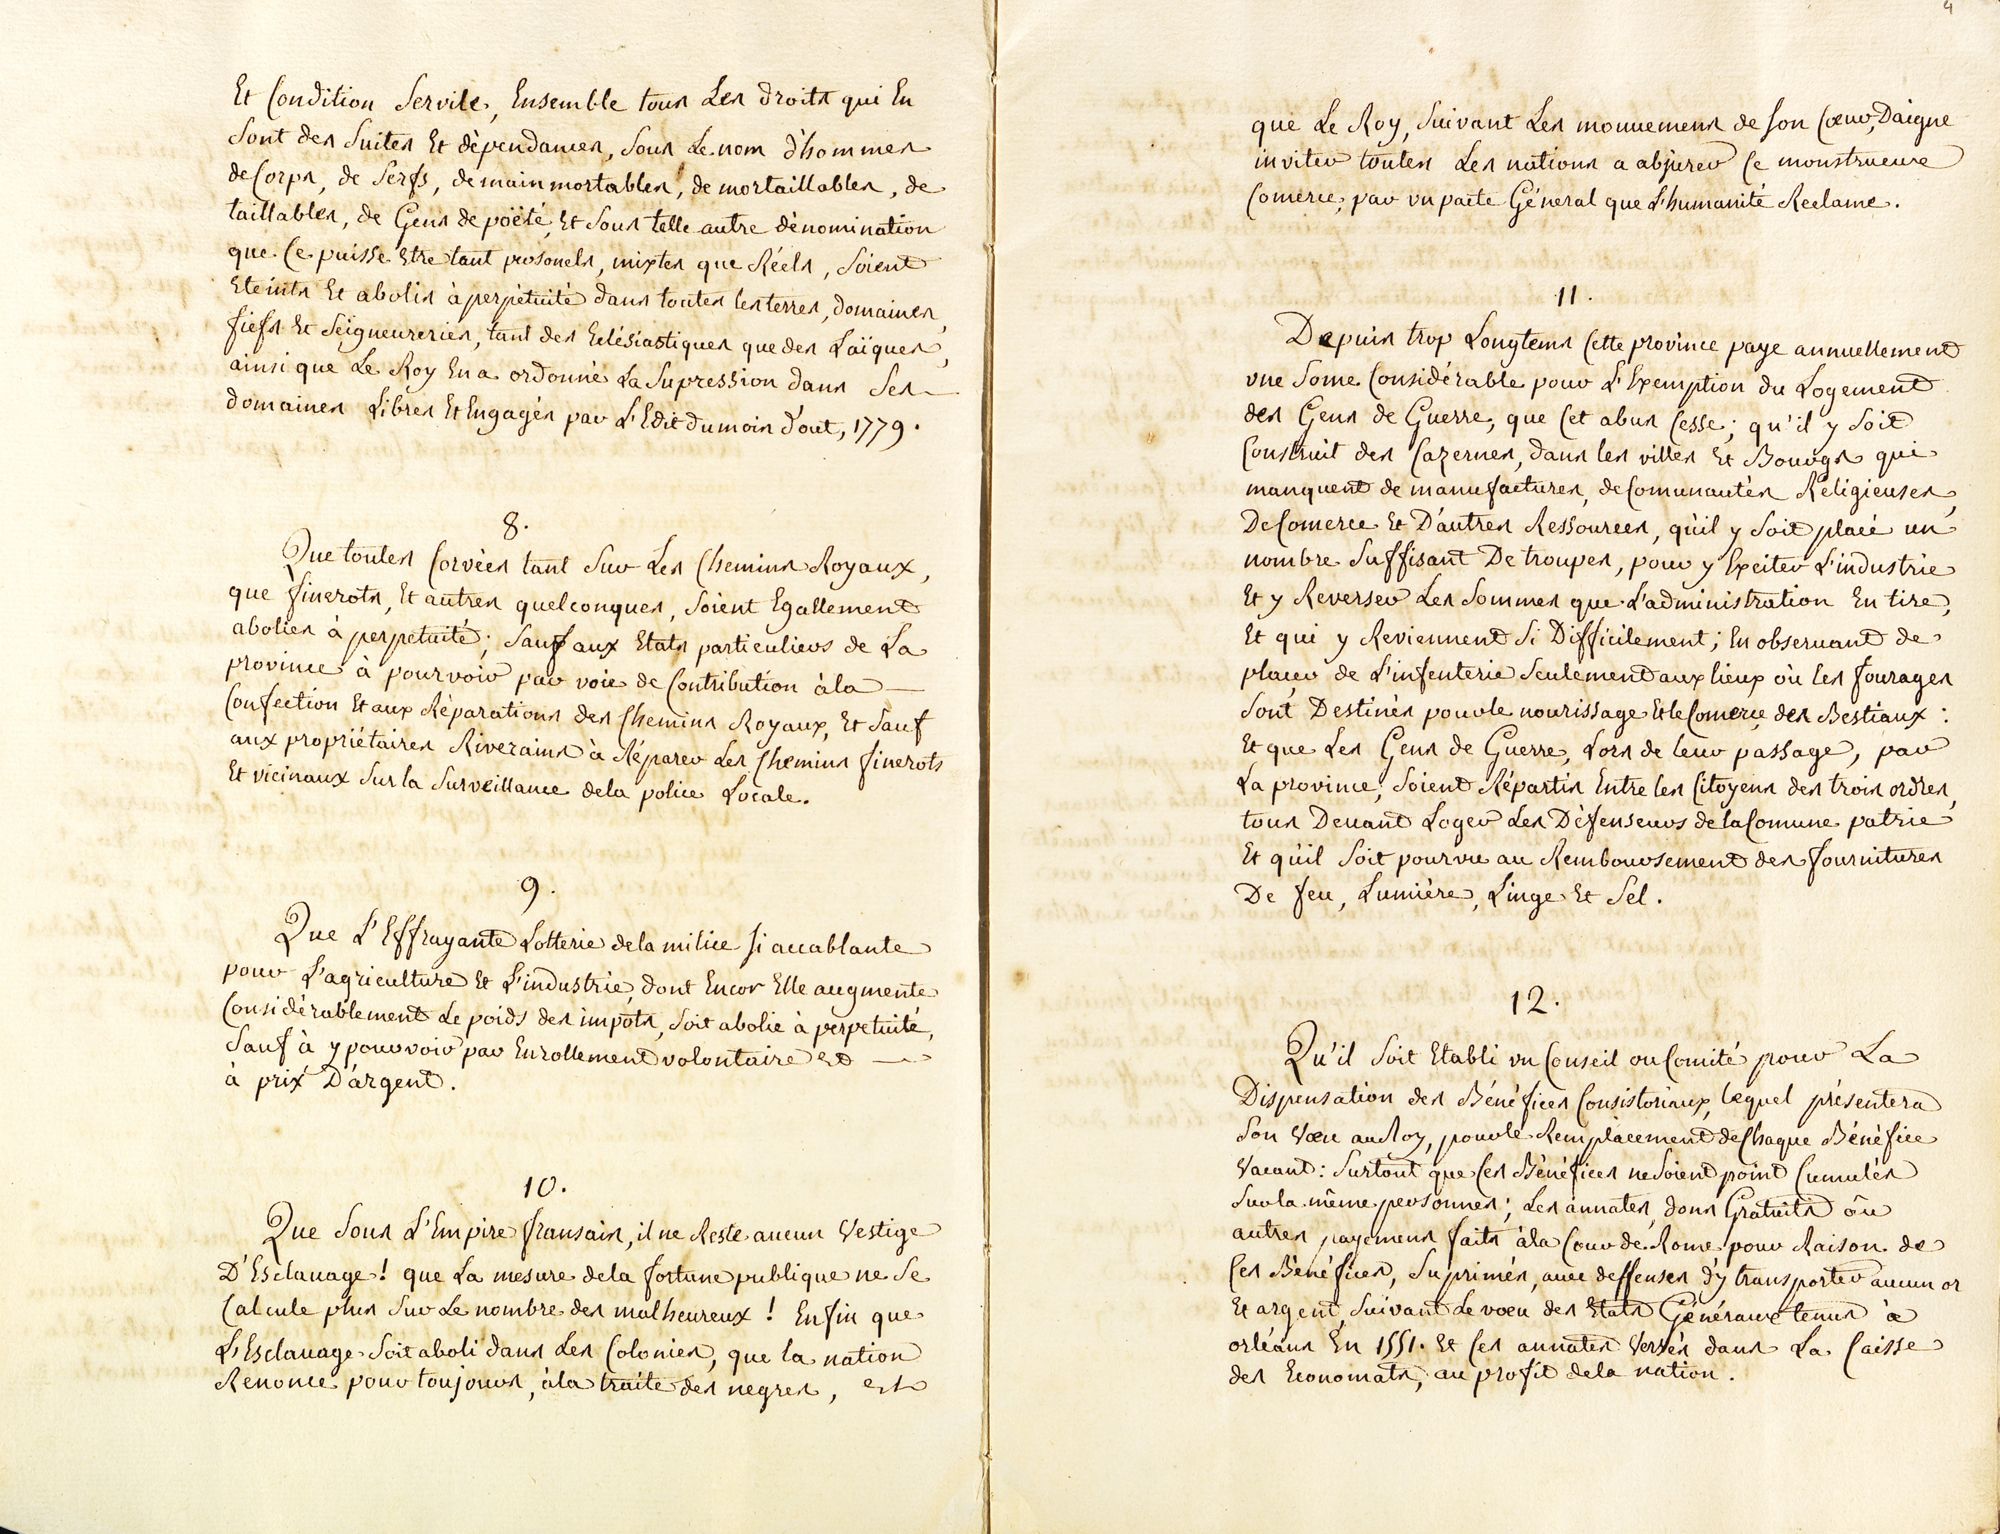 Et Condition Servile, Ensemble tous Les droits qui En
Sont des Suites Et dépendances, Sous Le nom d'hommes
de Corps, de Serfs, de mainmortables, de mortaillables, de
taillables, de Gens de poëté, Et Sous telle autre dénomination
que Ce puisse Etre tant personels, mixtes que Réels, Soient
Eteints Et abolis à perpétuité dans toutes les terres, domaines,
fiefs Et Seigneureries, tant des Eclésiastiques que des Laïques,
ainsi que Le Roy En a ordonné La Supression dans Ses
domaines Libres Et Engagés par L'Edit du mois d'out, 1779.
8.
Que toutes Corvées tant Sur Les Chemins Royaux,
que finerots, Et autres quelconques, Soient Egallement
abolies à perpetuité; Sauf aux Etats particuliers de La
province à pourvoir par voie de Contribution à la
Confection Et aux Réparations des Chemins Royaux, Et Sauf
aux propriétaires Riverains à Réparer Les Chemins finerots
Et vicinaux Sur la Surveillance de la police Locale.
9.
Que L'Effrayante Lotterie de la milice si accablante
pour L'agriculture Et L'industrie, dont Encor Elle augmente
Considérablement Le poids des impots, Soit abolie à perpetuité,
Sauf à y pourvoir par Enrollement volontaire et
à prix D'argent.
10.
Que Sous L'Empire fransais, il ne Reste aucun Vestige
D'Esclavage! que La mesure de la fortune publique ne Se
Calcule plus Sur Le nombre des malheureux! Enfin que
L'Esclavage Soit aboli dans Les Colonies, que la nation
Renonce pour toujours, à la traite des negres, et
4
que Le Roy, Suivant Les mouuemens de son Cœur, Daigne
inviter toutes Les nations a abjurer Ce monstrueux
Comerce, par un pacte Géneral que L'humanité Reclame.
11.
Depuis trop Longtems Cette province paye annuellement
une Some Considérable pour L'Exemption du Logement
des Gens de Guerre, que Cet abus Cesse; qu'il y Soit
Construit des Cazernes, dans les villes Et Bourgs qui
manquent de manufactures, de Comunautés Religieuses,
De Comerce Et D'autres Ressources, qu'il y Soit placé un
nombre Suffisant De troupes, pour y Exciter L'industrie
Et y Reverser Les Sommes que L'administration En tire,
Et qui y Reviennent Si Difficilement; En observant de
placer de L'infenterie Seulement aux lieux où les fourages
Sont Destinés pour le nourissage Et le Comerce des Bestiaux:
Et que Les Gens de Guerre, Lors de leur passage, par
La province, Soient Répartis Entre les Citoyens des trois ordres,
tous Deuant Loger Les Défenseurs de la Comune patrie
Et qu'il Soit pourvu au Remboursement des fournitures
De feu, Lumière, Linge Et Sel.
12.
Qu'il Soit Etabli un Conseil ou Comité pour La
Dispensation des Bénéfices Consistoriaux, lequel présentera
Son Vœu au Roy, pour le Remplacement de Chaque Bénéfice
Vacant: Surtout que Ces Bénéfices ne Soient point Cumulés
Sur la même personnes; Les annates, dons Gratuits ou
autres payemens faits à la Cour de Rome pour Raison de
Ces Bénéfices, Suprimés, avec deffenses d'y transporter aucun or
Et argent, Suivant Le vœu des Etats Généraux tenus à
orléans En 1551. Et Ces annates Versés dans La Caisse
des Economats, au profit de la nation.